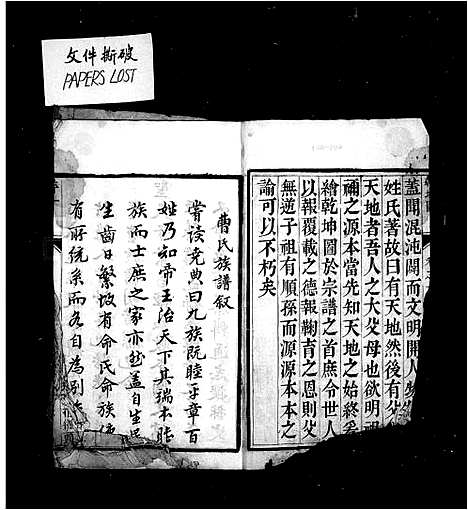 文件撕破
PAPERS LOST
蓋聞混沌闢而文明開人
姓氏著故曰有天地然後有父
天地者吾人之大父母也欲明
禰之源本當先知天地之始終
繪乾坤圖於宗譜之首庶令世人
以報覆載之德報鞠育之恩則父
無逆子祖有順孫而源源本本之
論可以不朽矣
曹氏族譜叙
嘗读尭典曰九族既睦平章百
姓乃知帝王治天下其端本
族而士庶之家亦然蓋自生民
生齒日繁故有命氏命族
有所統系而各自為別